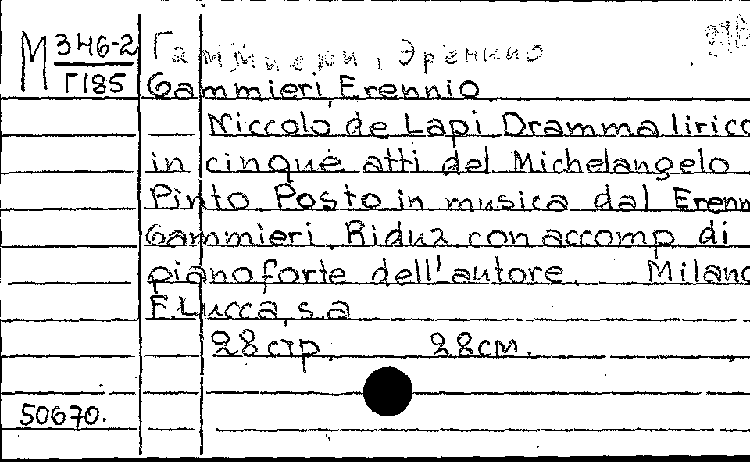 М 346-2
Г185
Гаммиери, Эреннио
Gammieri, Erennio
Niccolo de Lapi Dramma lirico
in cinque atti del Michelangelo
Pinto Posto in musica dal Erenn
Gammieri. Riduz con accomp di
pianoforte dell'autore. Milano
F. Lucca, s.a
28 стр. 28 см.
50670.